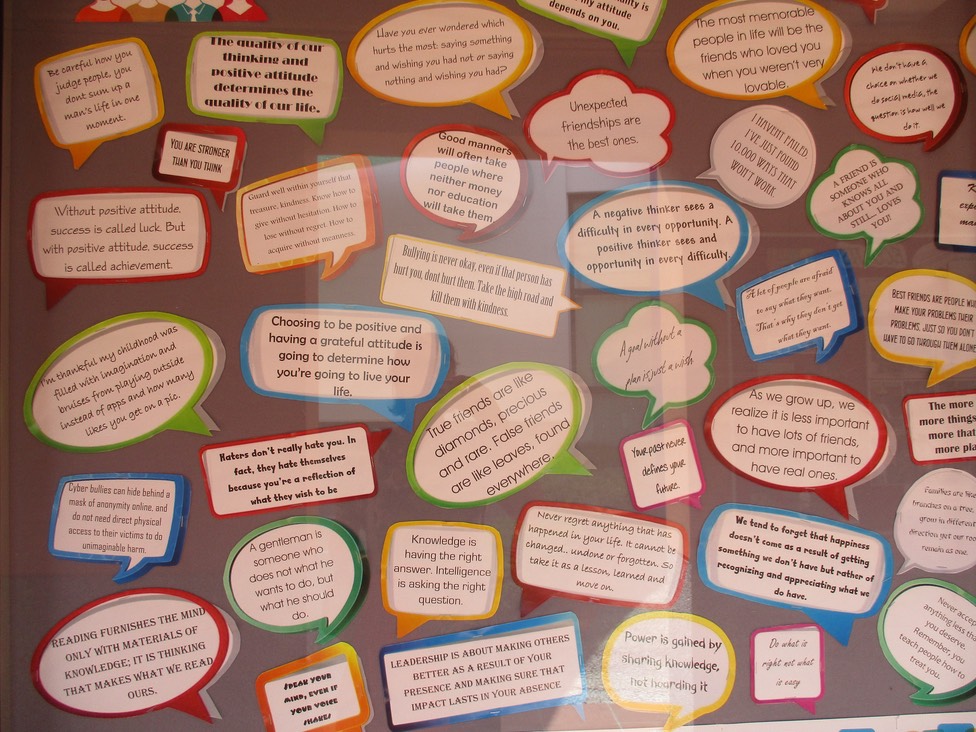 Be careful how you
judge people, you
dont sum up a
man's life in one
moment.
The quality of our
thinking and
positive attitude
determines the
quality of our life.
Have you ever wondered which
hurts the most: saying something
and wishing you had not or saying
nothing and wishing you had?
my attitude
depends on you.
The most memorable
people in life will be the
friends who loved you
when you weren't very
lovable.
We don't have a
choice on whether we
do social media, the
question is how well we
do it.
YOU ARE STRONGER
THAN YOU THINK
Unexpected
friendships are
the best ones.
I HAVEN'T FAILED.
I'VE JUST FOUND
10,000 WAYS THAT
WON'T WORK
A FRIEND IS
SOMEONE WHO
KNOWS ALL
ABOUT YOU AND
STILL... LOVES
YOU!
Good manners
will often take
people where
neither money
nor education
will take them
Without positive attitude,
success is called luck. But
with positive attitude, success
is called achievement.
Guard well within yourself that
treasure, kindness. Know how to
give without hesitation. How to
lose without regret. How to
acquire without meanness.
A negative thinker sees a
difficulty in every opportunity. A
positive thinker sees and
opportunity in every difficulty.
Bullying is never okay, even if that person has
hurt you, dont hurt them. Take the high road and
kill them with kindness.
A lot of people are afraid
to say what they want.
That's why they don't get
what they want.
BEST FRIENDS ARE PEOPLE WH
MAKE YOUR PROBLEMS THEIR
PROBLEMS, JUST SO YOU DON'T
HAVE TO GO THROUGH THEM ALONE
I'm thankful my childhood was
filled with imagination and
bruises from playing outside
instead of apps and how many
likes you get on a pic.
Choosing to be positive and
having a grateful attitude is
going to determine how
you're going to live your
life.
A goal without a
plan is just a wish
True friends are like
diamonds, precious
and rare. False friends
are like leaves, found
everywhere.
As we grow up, we
realize it is less important
to have lots of friends,
and more important to
have real ones.
The more
more things
more that
more pla
Haters don't really hate you. In
fact, they hate themselves
because you're a reflection of
what they wish to be
Your past never
defines your
future.
Cyber bullies can hide behind a
mask of anonymity online, and
do not need direct physical
access to their victims to do
unimaginable harm.
A gentleman is
someone who
does not what he
wants to do, but
what he should
do.
Knowledge is
having the right
answer. Intelligence
is asking the right
question.
Never regret anything that has
happened in your life. It cannot be
changed.. undone or forgotten. So
take it as a lesson, learned and
move on.
We tend to forget that happiness
doesn't come as a result of getting
something we don't have but rather of
recognizing and appreciating what we
do have.
Families are like
branches on a tree,
grow in different
direction yet our roo
remain as one.
READING FURNISHES THE MIND
ONLY WITH MATERIALS OF
KNOWLEDGE; IT IS THINKING
THAT MAKES WHAT WE READ
OURS.
SPEAK YOUR
MIND, EVEN IF
YOUR VOICE
SHAKES
LEADERSHIP IS ABOUT MAKING OTHERS
BETTER AS A RESULT OF YOUR
PRESENCE AND MAKING SURE THAT
IMPACT LASTS IN YOUR ABSENCE
Power is gained by
sharing knowledge,
not hoarding it
Do what is
right not what
is easy
Never accep
anything less th
you deserve.
Remember, you
teach people how to
treat you.